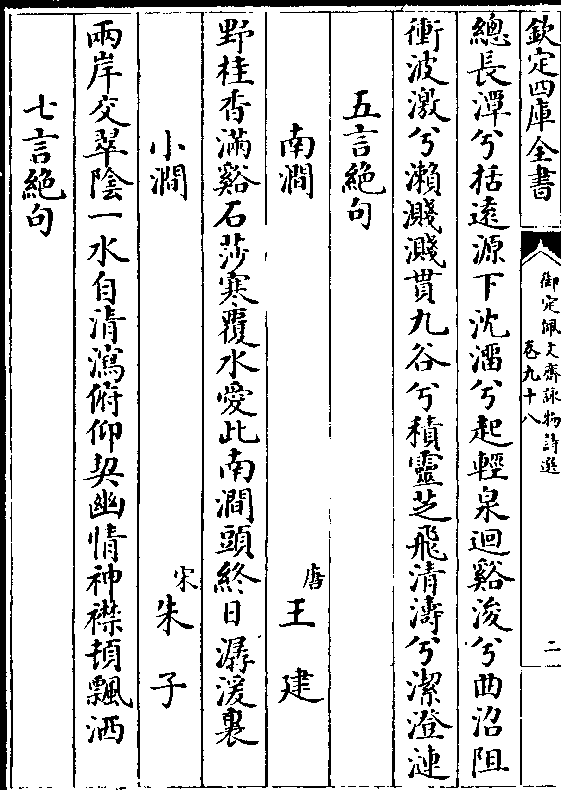 欽定四庫全書
御定佩文齋詠物詩選
卷九十八
二
總長潭兮括遠源下沈澑兮起輕泉迴谿浚兮曲沼阻
衝波激兮瀨濺濺貫九谷兮積靈芝飛清濤兮潔澄漣
五言絶句
南澗
唐
王建
野桂香滿谿石莎寒覆水愛此南澗頭終日潺湲裏
小澗
宋
朱子
兩岸交翠陰一水自清瀉俯仰契幽情神襟頓飄洒
七言絶句